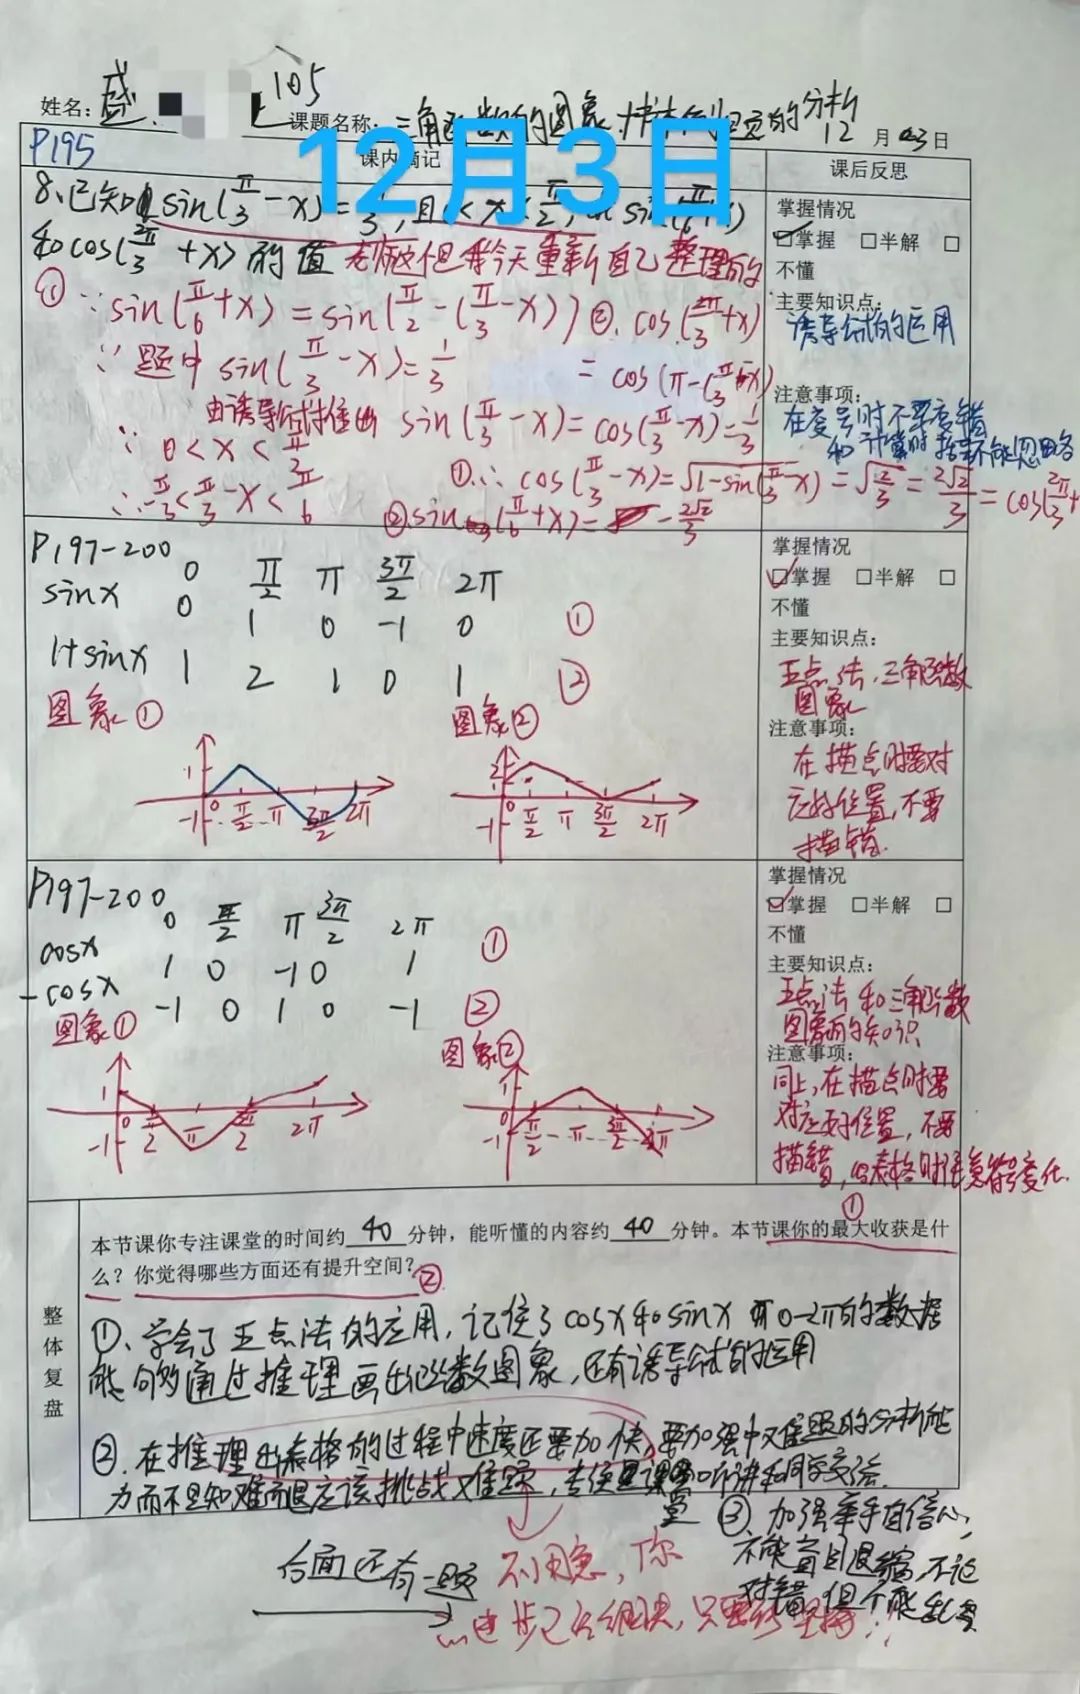 105
姓名：盛
课题名称：三角函数的图象 书本例题的分析 12月03日
12月3日
P195
课内摘记
课后反思
8、已知 sin(π/3 - x) = 1/3, 且 < x < π/2, sin(π/6 + x)
和cos(2π/3 + x) 的值 但我今天重新自己整理的
① ∵ sin(π/6 + x) = sin(π/2 - (π/3 - x)) ②. cos(2π/3 + x)
∵ 题中 sin(π/3 - x) = 1/3 = cos(π - (π/3 - x))
由诱导公式推出 sin(π/3 - x) = cos(π/3 - x) = 1/3
∵ 0 < x < π/2
①∴ cos(π/3 - x) = √1-sin(π/3 - x) = √2/3 = 2√2/3 = cos(2π/3 +
∴ -π/3 < π/3 - x < π/6 ②.sin (π/6 + x) = - 2√2/3
掌握情况
☑掌握 □半解 □
不懂
主要知识点：
诱导公式的运用
注意事项：
在变号时不要变错
和计算时括号不能忽略
P197-200
0 π/2 π 3π/2 2π
sinx 0 1 0 -1 0 ①
1+sinx 1 2 1 0 1 ②
图象① 图象②
1 -1 0 π/2 π 3π/2 2π
2 -1 0 π/2 π 3π/2 2π
掌握情况
☑掌握 □半解 □
不懂
主要知识点：
五点法，三角函数
图象
注意事项：
在描点时要对
应好位置，不要
描错.
P197-200
0 π/2 π 3π/2 2π
cosx 1 0 -1 0 1 ①
-cosx -1 0 1 0 -1 ②
图象① 图象②
1 -1 0 π/2 π 3π/2 2π
1 -1 0 π/2 π 3π/2 2π
掌握情况
☑掌握 □半解 □
不懂
主要知识点：
五点法和三角函数
图象的知识
注意事项：
同上，在描点时要
对应好位置，不要
描错，表格时注意符号变化.
整体复盘
本节课你专注课堂的时间约 40 分钟，能听懂的内容约 40 分钟。本节课你的最大收获是什 ①
么？你觉得哪些方面还有提升空间？②
①、学会了五点法的应用，记住了cosx和sinx 0-2π的数据
能够通过推理画出函数图象，还有诱导公式的运用
②. 在推理出表格的过程中速度还要加快，要加强中难题的分析能
力而不是知难而退应该挑战难题， 课堂听讲和同学交流.
③、加强举手自信心，
不能盲目退缩，不论
对错，但不能乱
后面还有一题
不用急，你
进步已经很快，只要 坚持！！